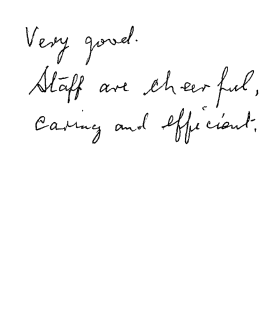 Very good.
Staff are cheerful,
caring and efficient.